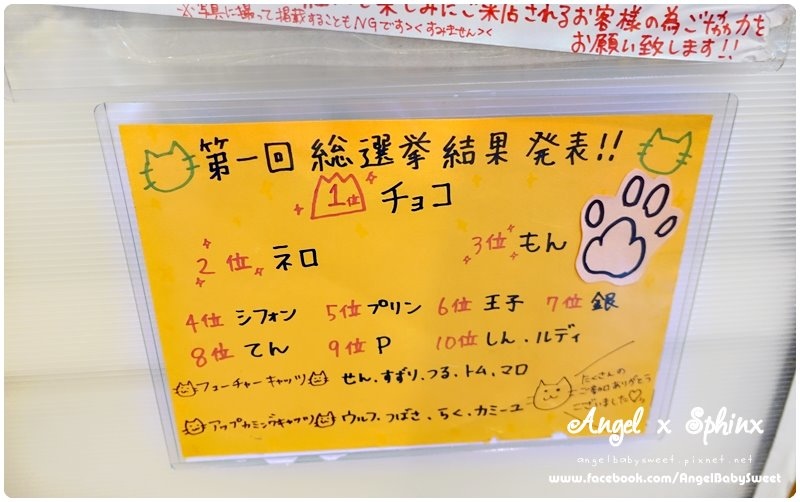 ※写真に撮って掲載することもNGです><すみません><
楽しみにご来店されるお客様の為ご協力を
お願い致します!!
第一回 総選挙結果 発表!!
1位 チョコ
2位 ネロ 3位 もん
4位 シフォン 5位 プリン 6位 王子 7位 銀
8位 てん 9位 P 10位 しん・ルディ
フューチャーキャッツ せん、すずり、つる、トム、マロ
アップカミングキャッツ ウルフ、つばさ、らく、カミーユ
たくさんの
ご投票ありがとう
ございました♡
Angel x Sphinx
angelbabysweet.pixnet.net
www.facebook.com/AngelBabySweet